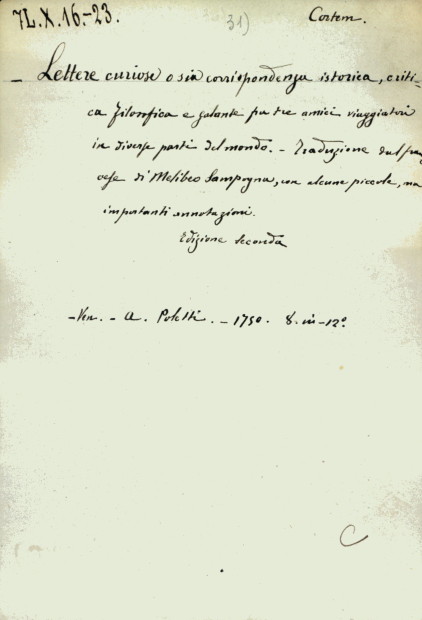 7L.X.16.-23. 31) Cortem.
- Lettere curiose o sia corrispondenza istorica, criti-
ca filosofica e galante fra tre amici viaggiatori
in diverse parti del mondo. - Traduzione dal fran
cese di Melibeo Sampogna, con alcune piccole, ma
importanti annotazioni.
Edizione seconda
- Ven. - A. Poletti. - 1750. 8. in - 12º
C